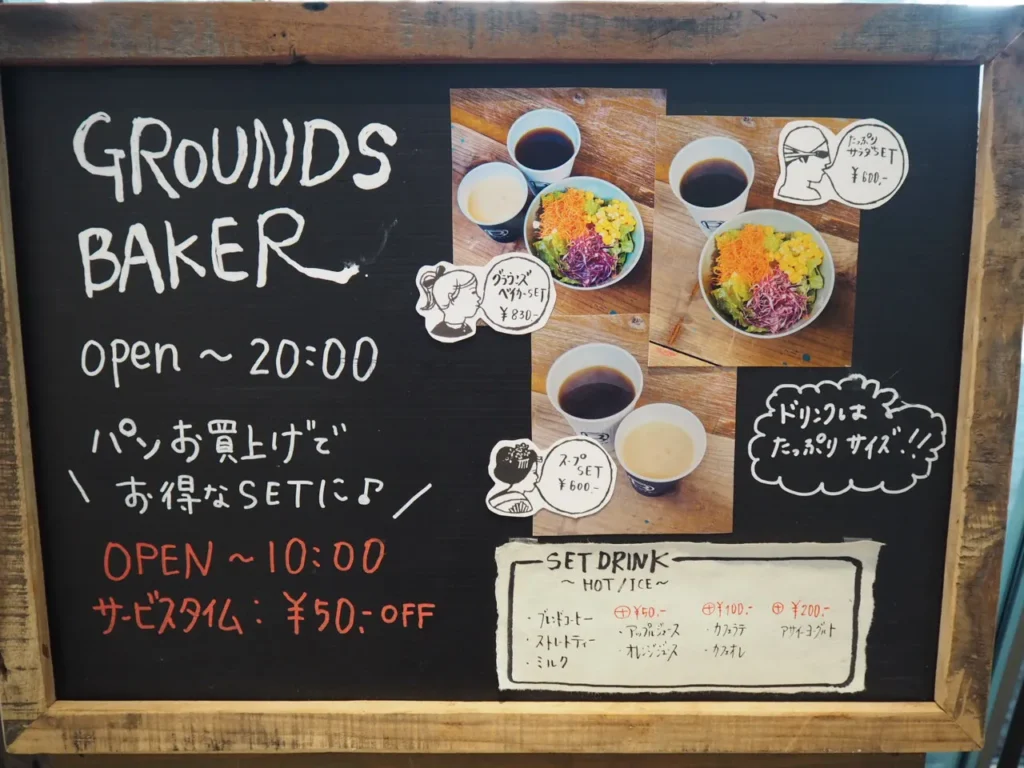 GROUNDS
BAKER
open ～ 20:00
パンお買上げで
お得なSETに♪
OPEN ～ 10:00
サービスタイム：¥50.- OFF
グラウンズ
ベイカーSET
¥830-
たっぷり
サラダSET
¥600.-
スープ
SET
¥600.-
ドリンクは
たっぷりサイズ!!
SET DRINK
～ HOT / ICE ～
・ブレンドコーヒー
・ストレートティー
・ミルク
⊕¥50.-
・アップルジュース
・オレンジジュース
⊕¥100.-
・カフェラテ
・カフェオレ
⊕ ¥200.-
アサイーヨーグルト